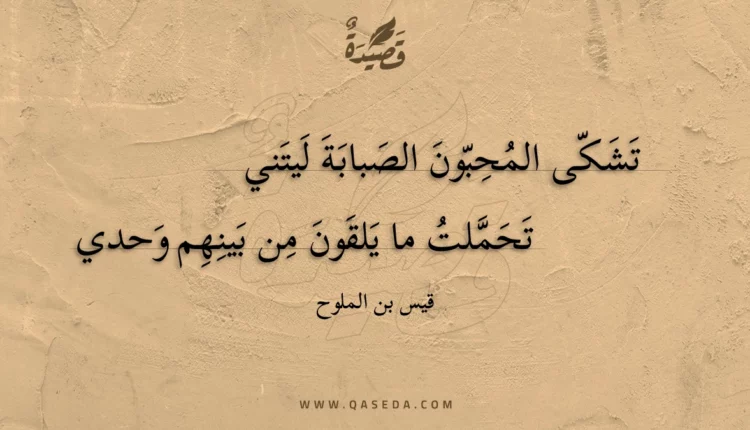 قَصِيدَةٌ
تَشَكّى المُحِبّونَ الصَبابَةَ لَيتَني
تَحَمَّلتُ ما يَلقَونَ مِن بَينِهِم وَحدي
قيس بن الملوح
WWW.QASEDA.COM